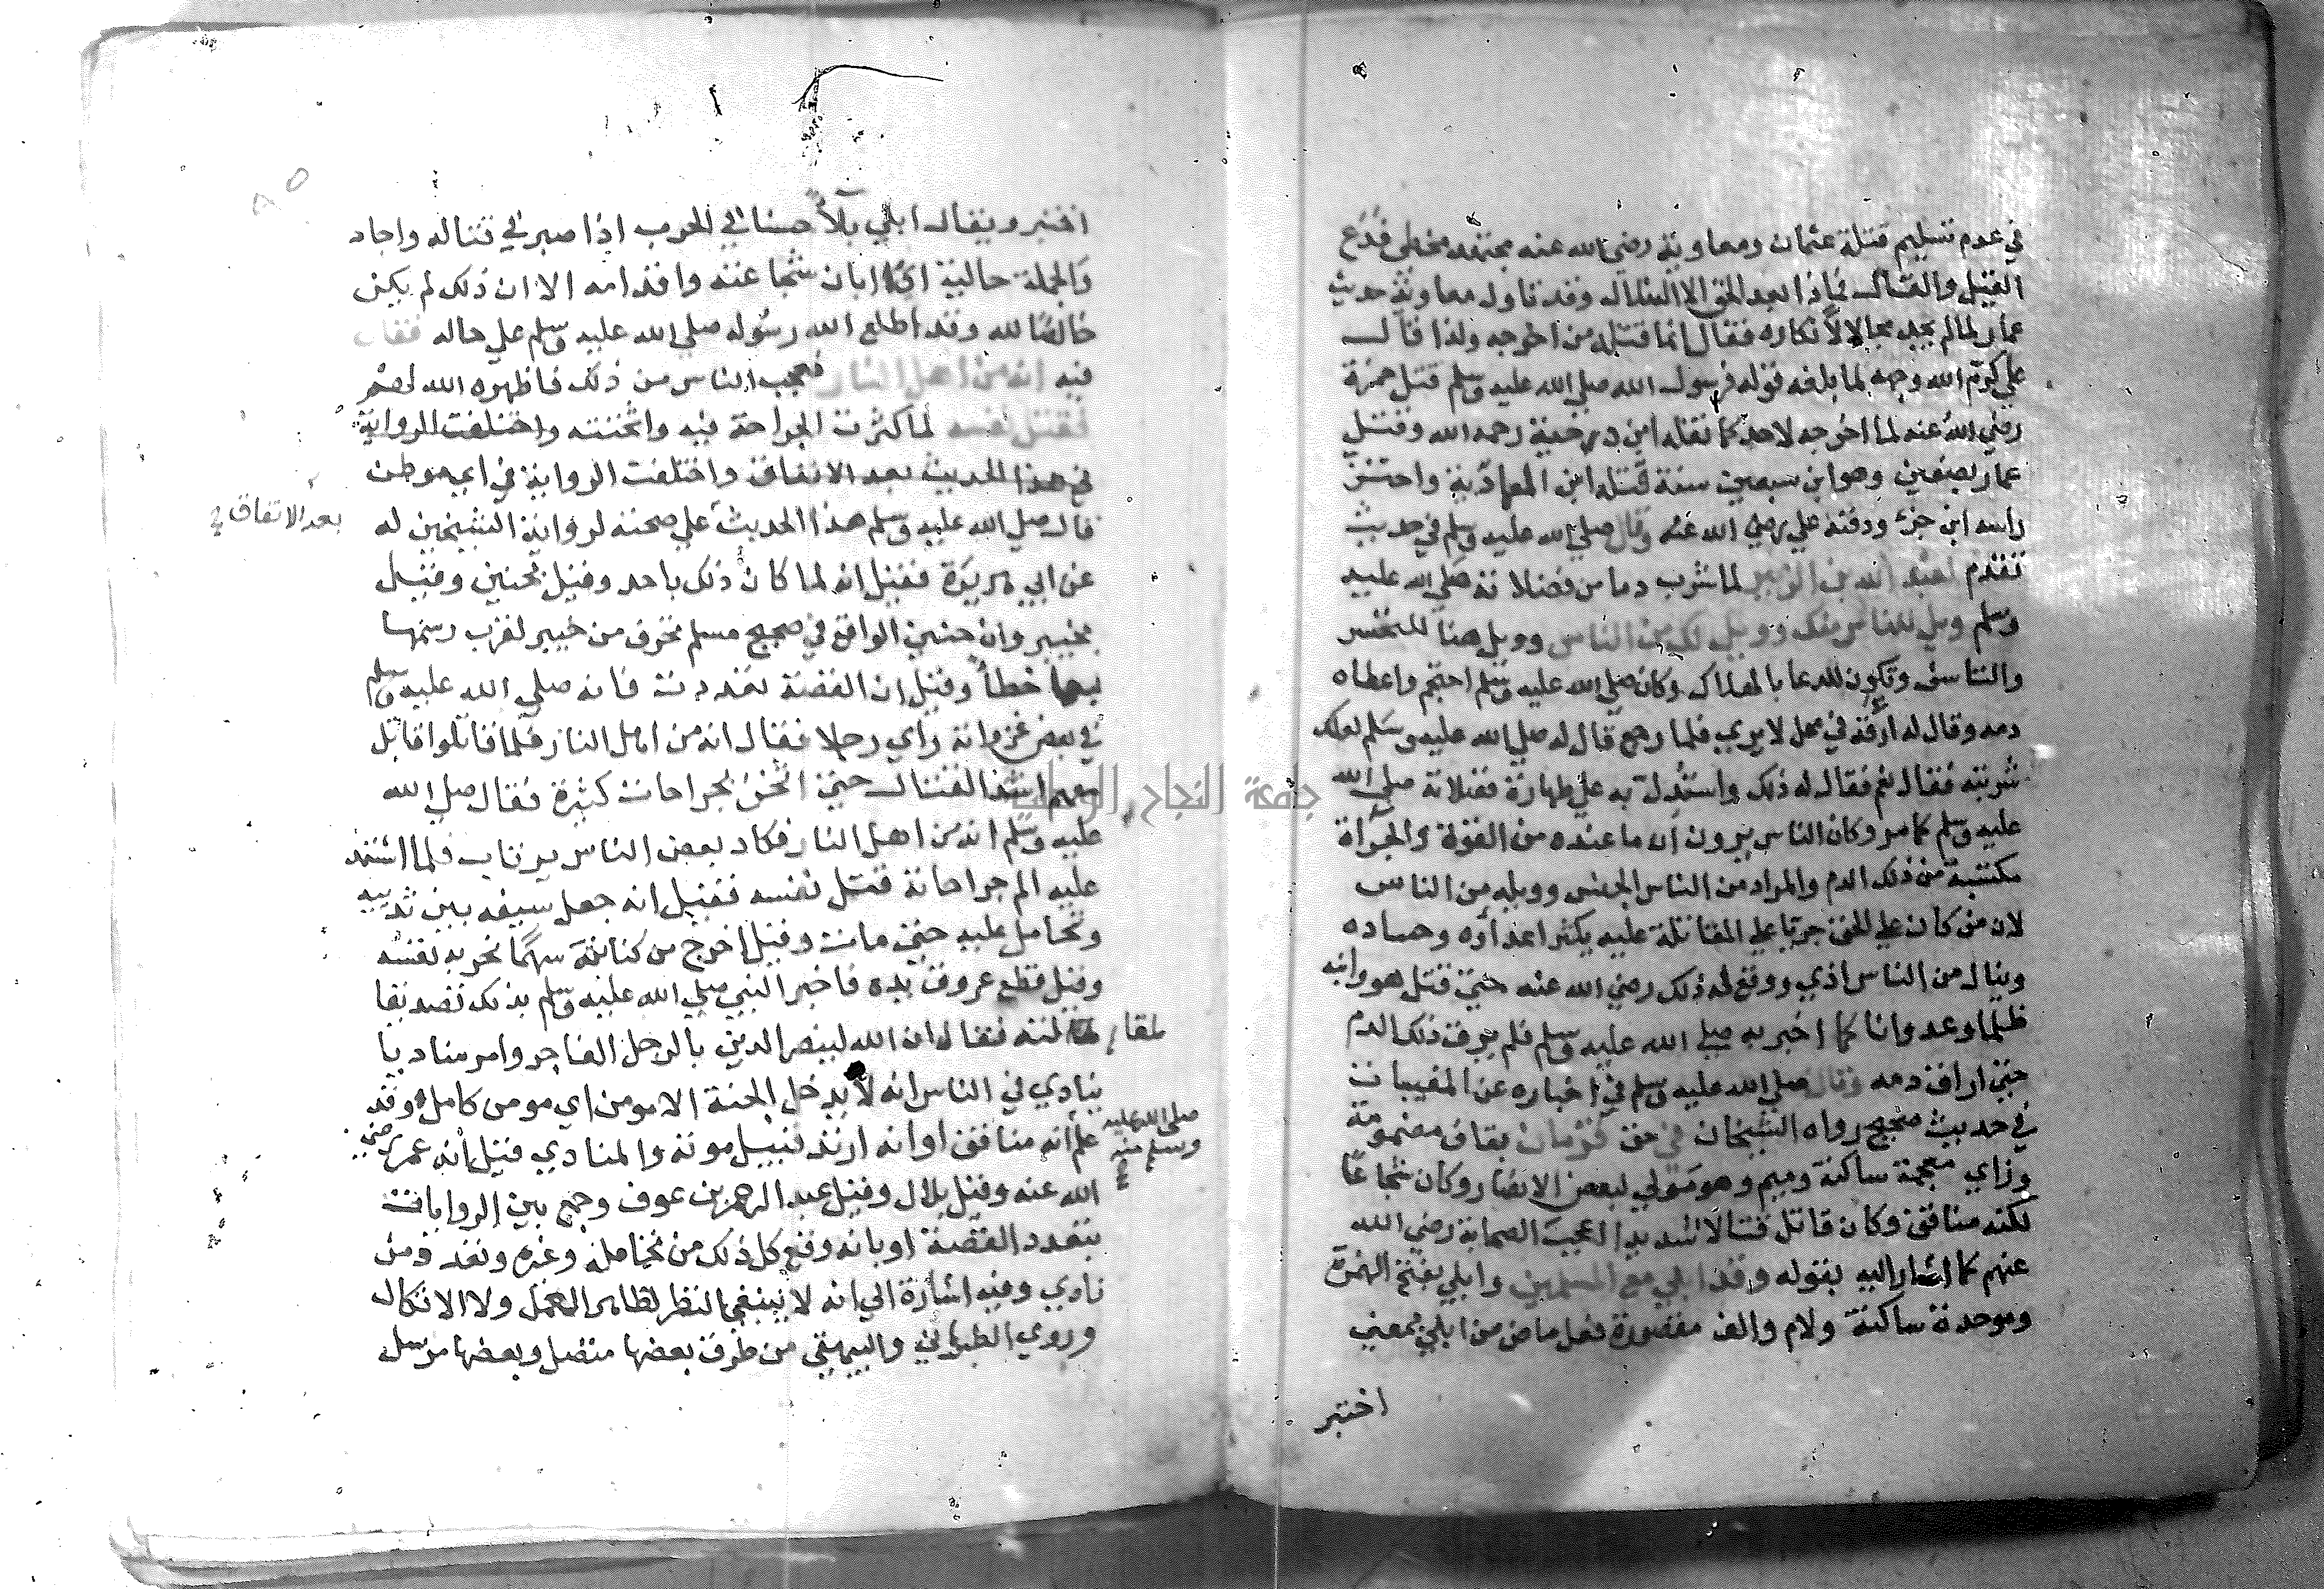 في عدم تسليم قتلة عثمان ومعاوية رضي الله عنه مجتهد مخطي فدع
القيل والقال فماذا بعد الحق الا الضلال وقد تاول معاوية حديث
عمار لما لم يجد مجالا لانكاره فقال انما قتله من اخرجه ولذا قال
علي كرم الله وجهه لما بلغه قوله فرسول الله صلى الله عليه وسلم قتل حمزة
رضي الله عنه لما اخرجه لاحد كما نقله ابن دحية رحمه الله وقتل
عمار بصفين وهو ابن سبعين سنة قتله ابن واحتز
راسه ابن جزء ودفنه علي رضي الله عنه وقال صلى الله عليه وسلم في حديث
تقدم لعبد الله بن الزبير لما شرب دما من فضلاته صلى الله عليه
وسلم ويل للناس منك وويل لك من الناس وويل هنا للتحسر
والتاسف وتكون للدعا بالهلاك وكان صلى الله عليه وسلم احتجم واعطاه
دمه وقال له ارقه في محل لا يري فلما رجع قال له صلى الله عليه وسلم لعلك
شربته فقال نعم فقال له ذلك واستدل به علي طهارة فضلاته صلى الله
عليه وسلم كما مر وكان الناس يرون ان ما عنده من القوة والجرأة
مكتسبة من ذلك الدم والمراد من الناس الجنس وويله من الناس
لان من كان علي الحق جريا علي المقاتلة عليه يكثر اعداؤه وحساده
وينال من الناس اذي ووقع له ذلك رضي الله عنه حتي قتل هو وابنه
ظلما وعدوانا كما اخبر به صلى الله عليه وسلم فلم يرق ذلك الدم
حتي اراق دمه وقال صلى الله عليه وسلم في اخباره عن المغيبات
في حديث صحيح رواه الشيخان في حق قزمان بقاف مضمومة
وزاي معجمة ساكنة وميم وهو مولي لبعض الانصار وكان شجاعا
لكنه منافق وكان قاتل قتالا شديدا اعجب الصحابة رضي الله
عنهم كما اشار اليه بقوله وقد ابلي مع المسلمين وابلي بفتح الهمزة
وموحدة ساكنة ولام والف مقصورة فعل ماض من ابلي بمعني
اختبر
اختبر ويقال ابلي بلآ حسنا في الحرب اذا صبر في قتاله واجاد
والجملة حالية اي ابان شجاعته واقدامه الا ان ذلك لم يكن
خالصا لله وقد اطلع الله رسوله صلى الله عليه وسلم علي حاله فقال
فيه انه من اهل النار فعجب الناس من ذلك فاظهره الله لهم
فقتل نفسه لما كثرت الجراحة فيه واثخنته واختلفت الرواية
في هذا الحديث بعد الاتفاق واختلفت الرواية في اي موطن
بعد الاتفاق في
قال صلي الله عليه وسلم هذا الحديث علي صحته لرواية الشيخين له
عن ابي هريرة فقيل انه لما كان ذلك باحد وقيل بحنين وقيل
بخيبر وان حنين الواقع في صحيح مسلم محرف من خيبر لقرب رسمهما
خطأ وقيل ان القصة تعددت فانه صلى الله عليه وسلم
في بعض غزواته راي رجلا فقال انه من اهل النار فلما قاتلوا قاتل
معهم اشد القتال حتي اثخن بجراحات كثيرة فقال صلى الله
عليه وسلم انه من اهل النار فكاد بعض الناس يرتاب فلما اشتد
عليه الم جراحاته قتل نفسه فقيل انه جعل سيفه بين ثدييه
وتحامل عليه حتي مات وقيل اخرج من كنانته سهما نحر به نفسه
وقيل قطع عروق يده فاخبر النبي صلي الله عليه وسلم بذلك تصديقا
لمقالته فقال ان الله لينصر الدين بالرجل الفاجر وامر مناديا
لمقا
ينادي في الناس انه لا يدخل الجنة الا مومن اي مومن كامل وقد
صلى الله عليه
وسلم منه
علم أنه منافق او انه ارتد قبيل موته والمنادي قيل أنه عمر رضي
الله عنه وقيل بلال وقيل عبد الرحمن بن عوف وجمع بين الروايات
بتعدد القصة او بانه وقع كل ذلك من تحامله وغيره وتعدد من
نادي وفيه اشارة الي انه لا ينبغي النظر لظاهر العمل ولا الاتكال
وروي الطبراني والبيهقي من طرق بعضها متصل وبعضها مرسل
جامعة النجاح الوطنية